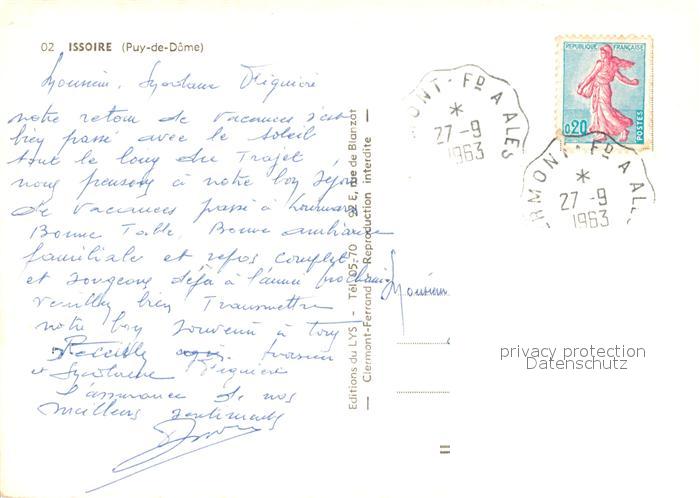 02 ISSOIRE (Puy-de-Dôme)
Monsieur, Madame
notre retour de vacances s'est
bien passé avec le soleil
tout le long du Trajet
nous pensons à notre bon séjour
de vacances passé à
Bonne Table, Bonne ambiance
familiale et repos complet
et songeons déjà à l'année prochaine
veuillez bien Transmettre
notre bon souvenir à tous
Monsieur
et Madame
l'assurance de nos
meilleurs sentiments
Editions du LYS - Tél. 05-70 - 92 E, rue de Blanzat
Clermont-Ferrand - Reproduction interdite
REPUBLIQUE FRANÇAISE
0,20
POSTES
MONT-Fd A ALES
27-9
1963
RMONT-Fd A ALE
27-9
1963
Monsieur
privacy protection
Datenschutz